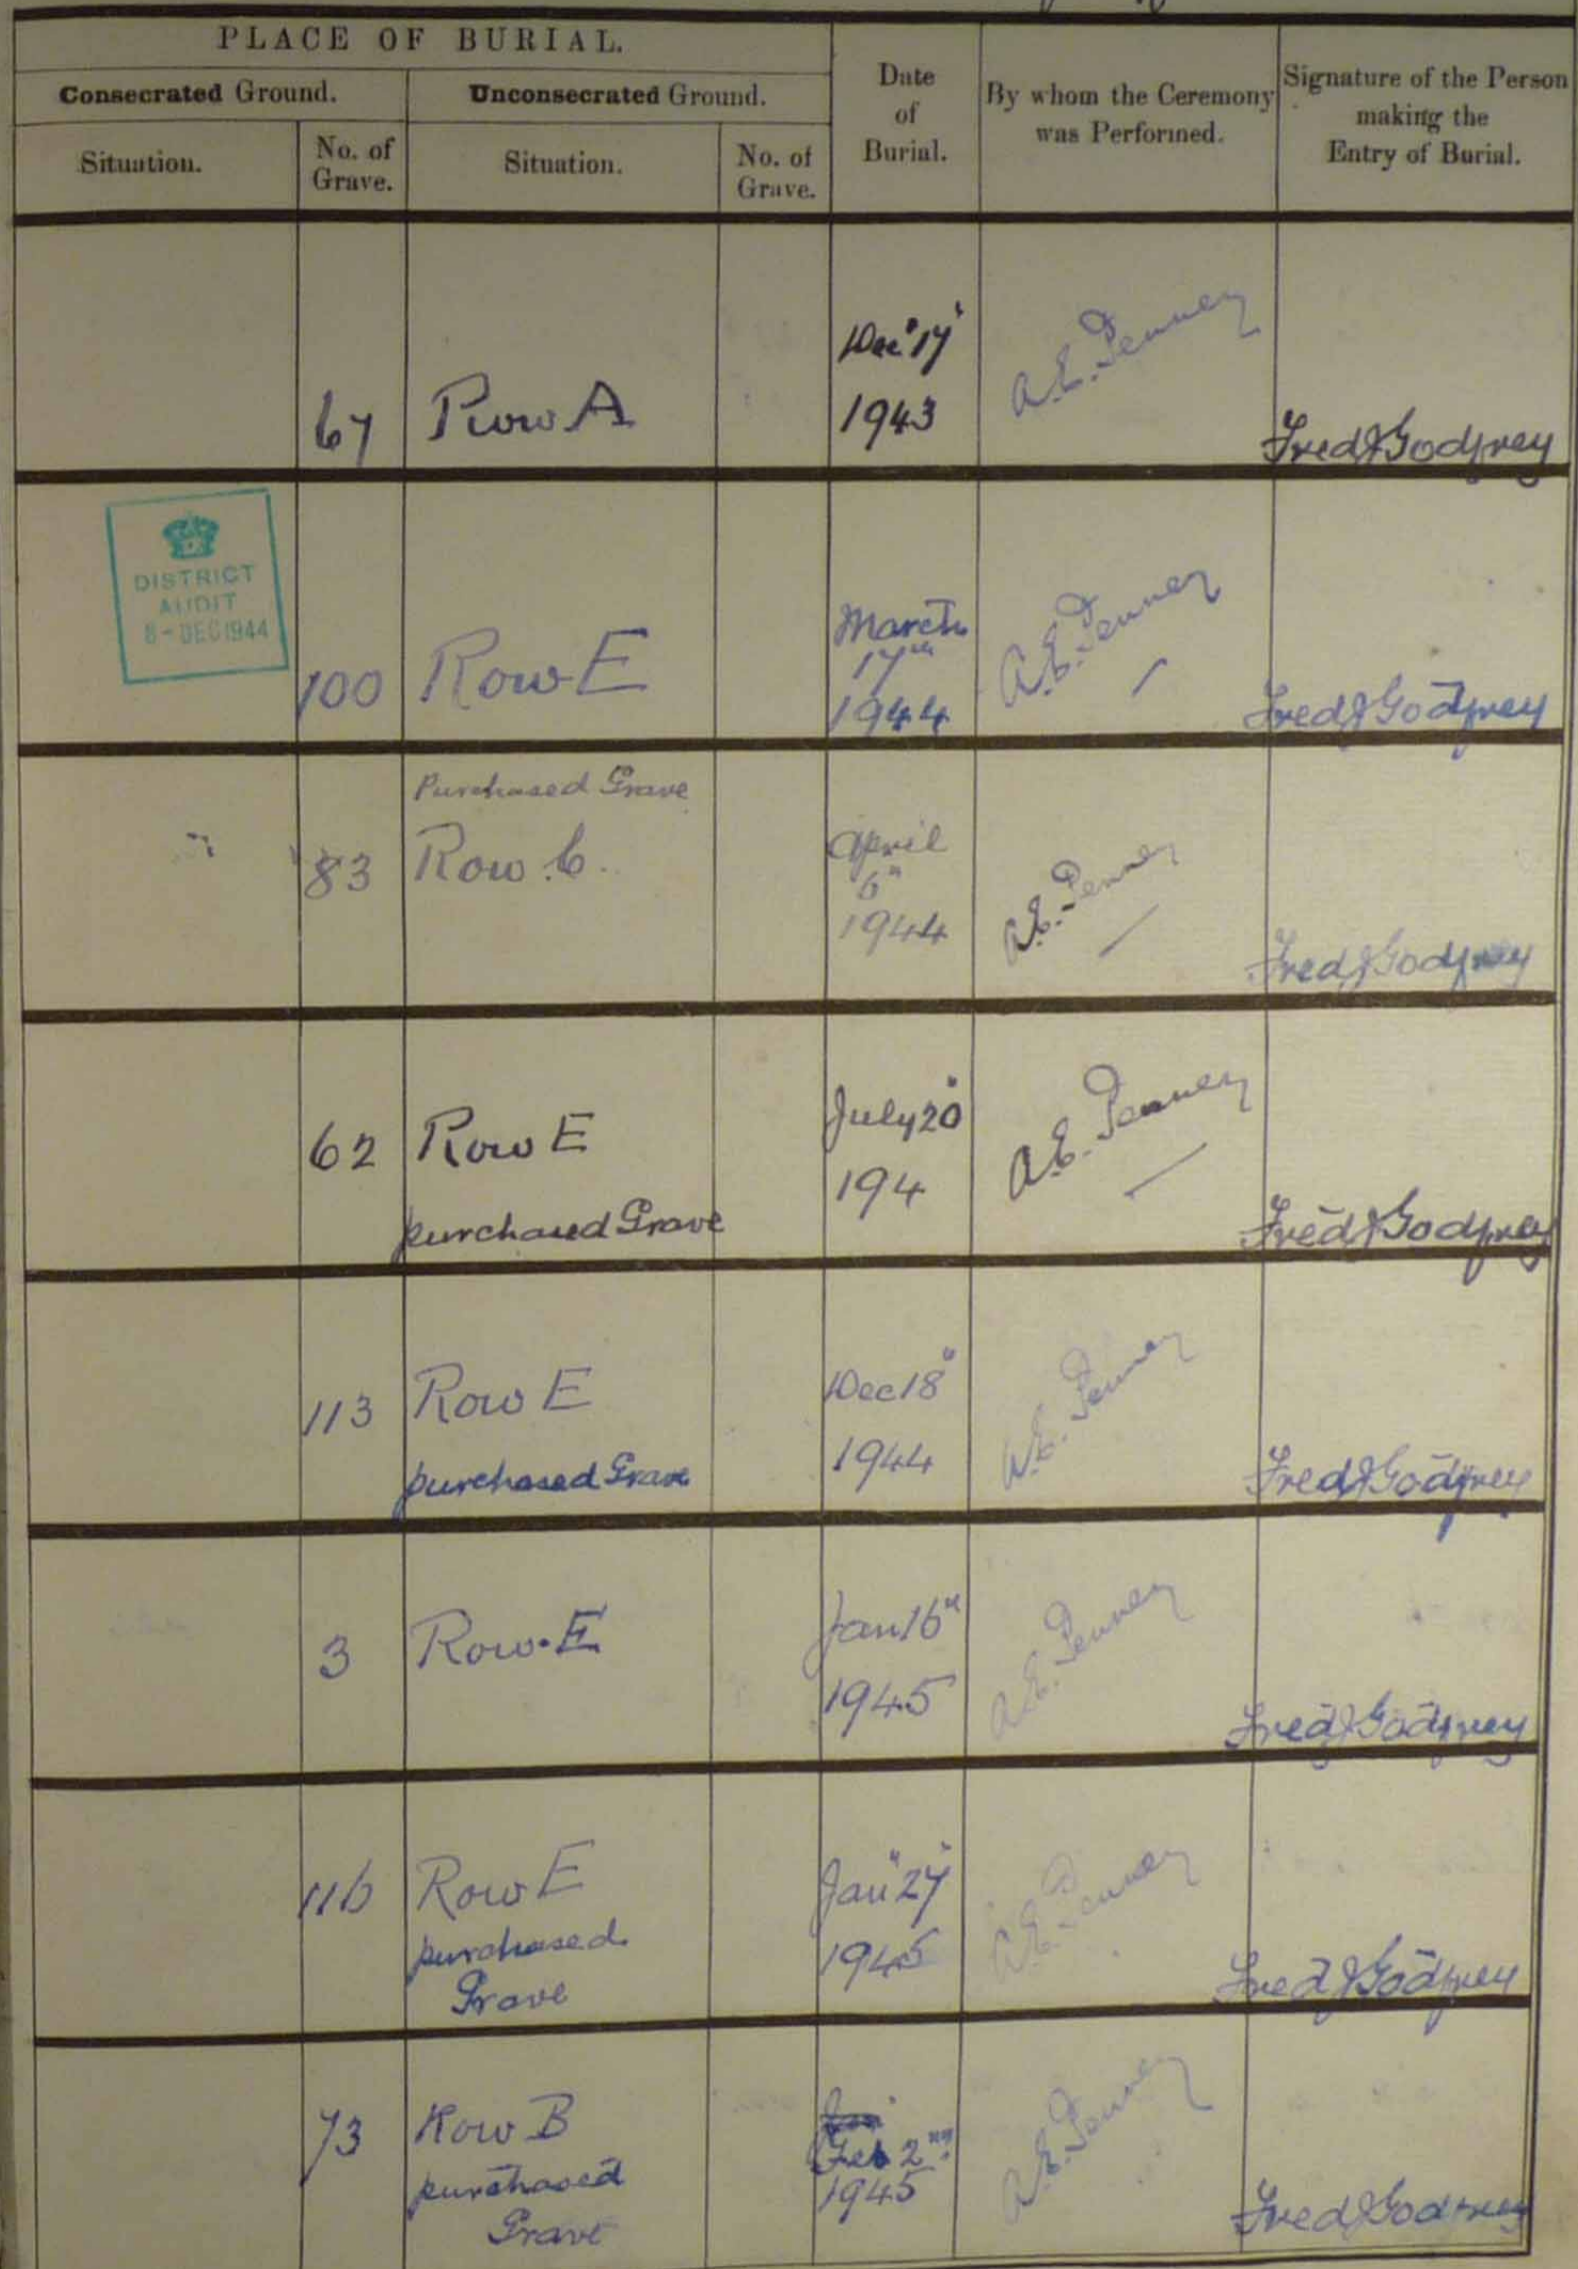 PLACE OF BURIAL.
Consecrated Ground.
Unconsecrated Ground.
Date
of
Burial.
By whom the Ceremony
was Performed.
Signature of the Person
making the
Entry of Burial.
Situation.
No. of
Grave.
Situation.
No. of
Grave.
67
Row A
Dec 17"
1943
A.E. Penney
Fred J Godfrey
DISTRICT
AUDIT
8-DEC 1944
100
Row E
March
17th
1944
A.E. Penney
Fred J Godfrey
83
Purchased Grave
Row C.
April
6"
1944
A.E. Penney
Fred J Godfrey
62
Row E
purchased Grave
July 20"
194
A.E. Penney
Fred J Godfrey
113
Row E
purchased Grave
Dec 18"
1944
A.E. Penney
Fred J Godfrey
3
Row E
Jan 16"
1945
A.E. Penney
Fred J Godfrey
116
Row E
purchased
Grave
Jan 27"
1945
A.E. Penney
Fred J Godfrey
73
Row B
purchased
Grave
Jan
Feb 2nd
1945
A.E. Penney
Fred J Godfrey